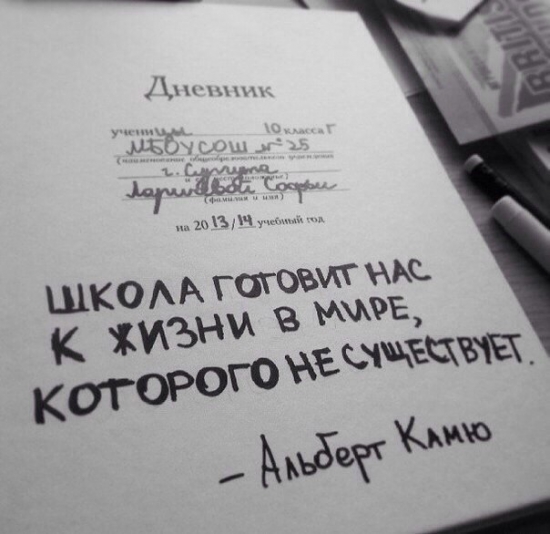 Дневник
ученицы 10 класса Г
МБОУСОШ №25
(наименование общеобразовательного учреждения
г. Сургута
Ларичевой Софьи
(фамилия и имя)
на 2013/14 учебный год
ШКОЛА ГОТОВИТ НАС
К ЖИЗНИ В МИРЕ,
КОТОРОГО НЕ СУЩЕСТВУЕТ.
– Альберт Камю